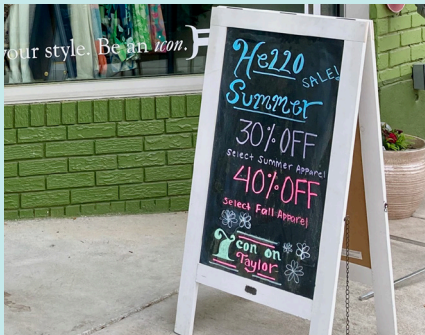 your style. Be an icon.
Hello
SALE!
Summer
30% OFF
Select Summer Apparel
40% OFF
Select Fall Apparel
Icon on
Taylor